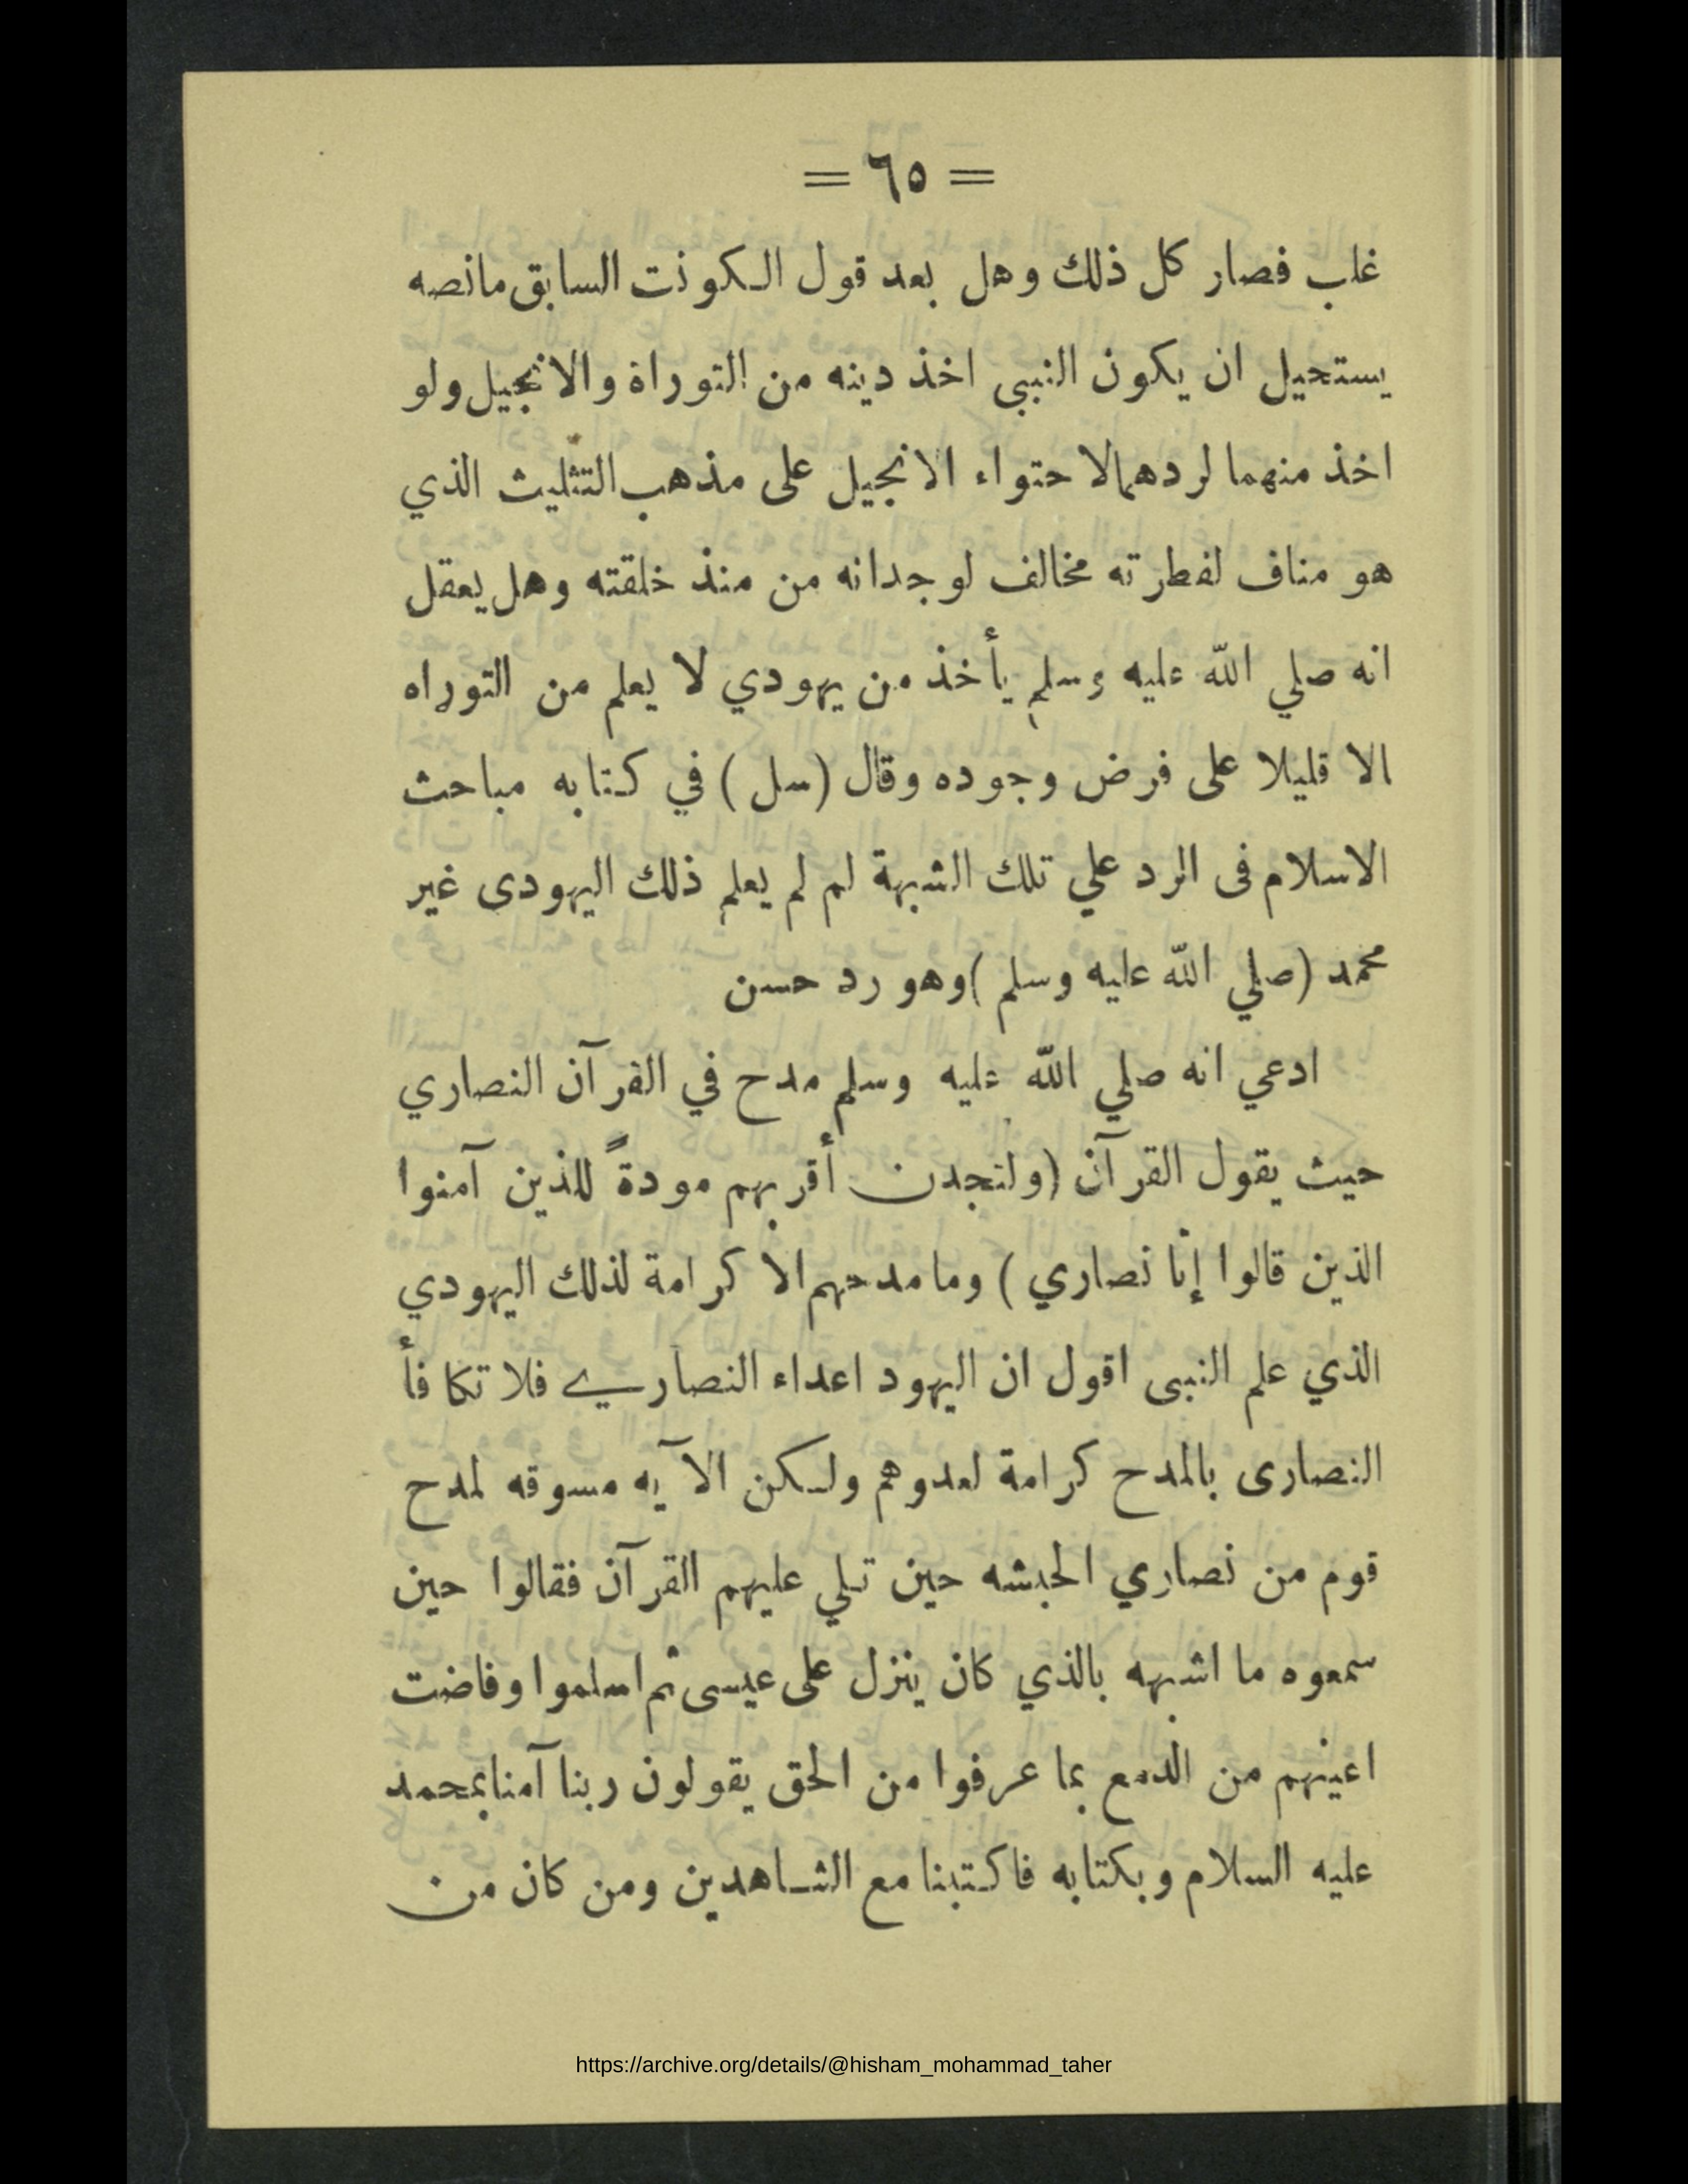 = ٦٥ =
غلب فصار كل ذلك وهل بعد قول الكونت السابق مانصه
يستحيل ان يكون النبي اخذ دينه من التوراة والانجيل ولو
اخذ منهما لردهمالاحتواء الانجيل على مذهب التثليث الذي
هو مناف لفطرته مخالف لوجدانه من منذ خلقته وهل يعقل
انه صلي الله عليه وسلم يأخذ من يهودي لا يعلم من التوراه
الا قليلا على فرض وجوده وقال (سل) في كتابه مباحث
الاسلام فى الرد علي تلك الشبهة لم لم يعلم ذلك اليهودى غير
محمد (صلي الله عليه وسلم) وهو رد حسن
ادعي انه صلي الله عليه وسلم مدح في القرآن النصاري
حيث يقول القرآن (ولتجدن أقربهم مودةً للذين آمنوا
الذين قالوا إنا نصاري) وما مدحهم الا كرامة لذلك اليهودي
الذي علم النبى اقول ان اليهود اعداء النصارے فلا تكافأ
النصارى بالمدح كرامة لعدوهم ولكن الآيه مسوقه لمدح
قوم من نصاري الحبشه حين تلي عليهم القرآن فقالوا حين
سمعوه ما اشبهه بالذي كان ينزل على عيسى ثم اسلموا وفاضت
اعينهم من الدمع بما عرفوا من الحق يقولون ربنا آمنا بمحمد
عليه السلام وبكتابه فاكتبنا مع الشاهدين ومن كان من
https://archive.org/details/@hisham_mohammad_taher